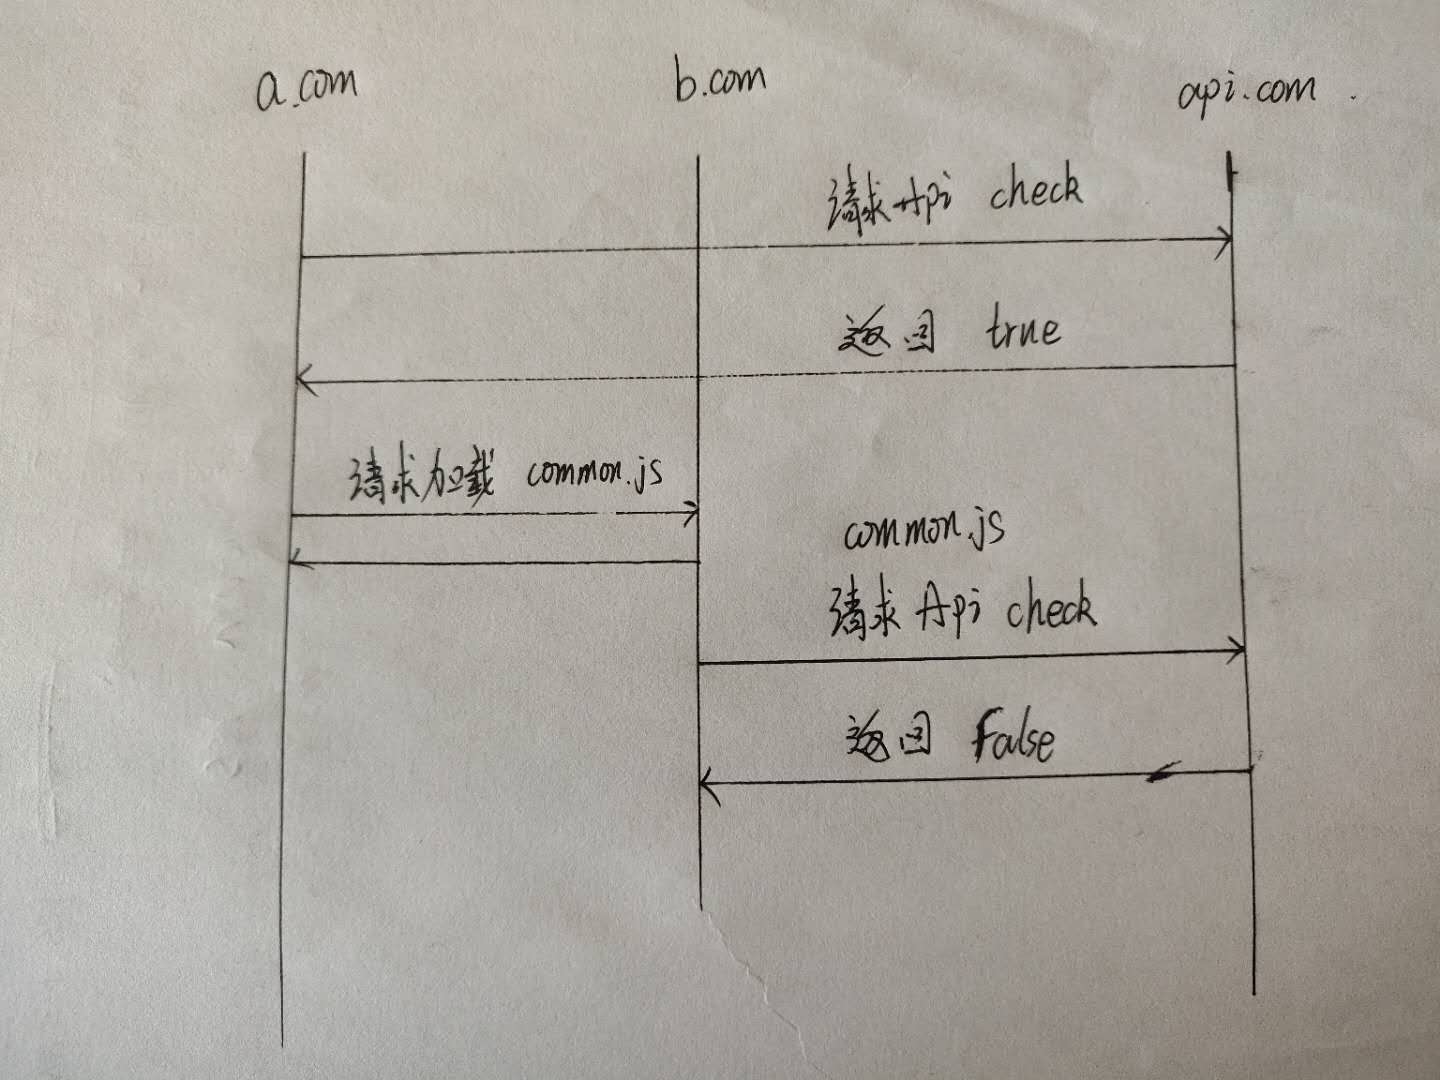 a.com
b.com
api.com
请求Api check
返回 true
请求加载 common.js
common.js
请求 Api check
返回 False